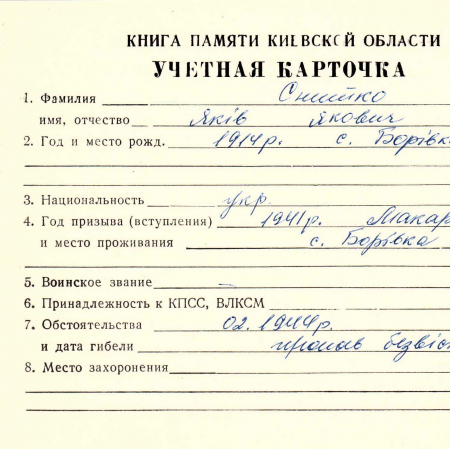 КНИГА ПАМЯТИ КИЕВСКОЙ ОБЛАСТИ
УЧЕТНАЯ КАРТОЧКА
1. Фамилия Снитко
имя, отчество Яків Якович
2. Год и место рожд. 1914р. с. Борівка
3. Национальность укр.
4. Год призыва (вступления) 1941р. Макар
и место проживания с. Борівка
5. Воинское звание –
6. Принадлежность к КПСС, ВЛКСМ
7. Обстоятельства 02.1944р.
и дата гибели пропав безвіс
8. Место захоронения